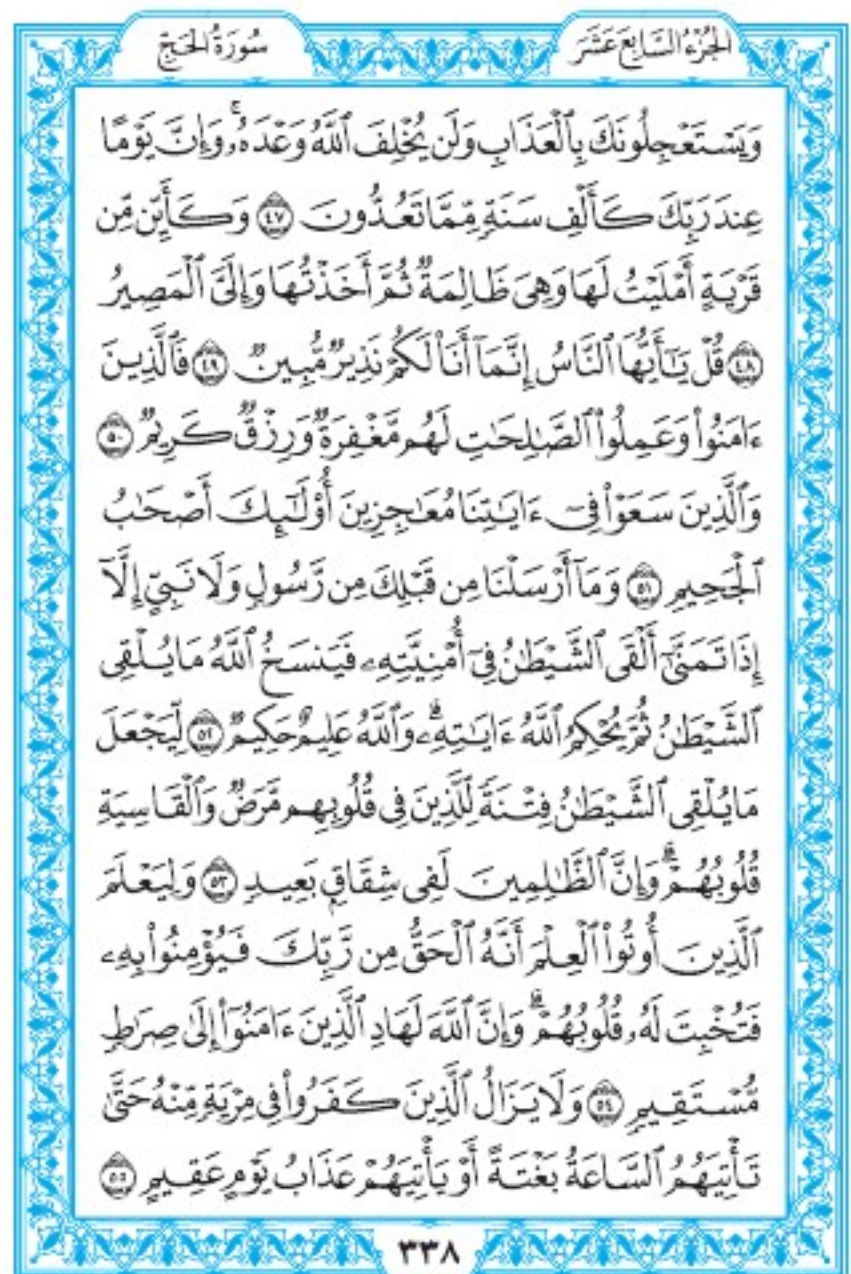 الجُزْءُ السَّابِعَ عَشَرَ
سُورَةُ الحَجّ
وَيَسْتَعْجِلُونَكَ بِٱلْعَذَابِ وَلَن يُخْلِفَ ٱللَّهُ وَعْدَهُۥۚ وَإِنَّ يَوْمًا
عِندَ رَبِّكَ كَأَلْفِ سَنَةٖ مِّمَّا تَعُدُّونَ ٤٧ وَكَأَيِّن مِّن
قَرْيَةٍ أَمْلَيْتُ لَهَا وَهِيَ ظَالِمَةٞ ثُمَّ أَخَذْتُهَا وَإِلَيَّ ٱلْمَصِيرُ
٤٨ قُلْ يَٰٓأَيُّهَا ٱلنَّاسُ إِنَّمَآ أَنَا۠ لَكُمْ نَذِيرٞ مُّبِينٞ ٤٩ فَٱلَّذِينَ
ءَامَنُوا۟ وَعَمِلُوا۟ ٱلصَّٰلِحَٰتِ لَهُم مَّغْفِرَةٞ وَرِزْقٞ كَرِيمٞ ٥٠
وَٱلَّذِينَ سَعَوْا۟ فِيٓ ءَايَٰتِنَا مُعَٰجِزِينَ أُو۟لَٰٓئِكَ أَصْحَٰبُ
ٱلْجَحِيمِ ٥١ وَمَآ أَرْسَلْنَا مِن قَبْلِكَ مِن رَّسُولٖ وَلَا نَبِيٍّ إِلَّآ
إِذَا تَمَنَّىٰٓ أَلْقَى ٱلشَّيْطَٰنُ فِيٓ أُمْنِيَّتِهِۦ فَيَنسَخُ ٱللَّهُ مَا يُلْقِي
ٱلشَّيْطَٰنُ ثُمَّ يُحْكِمُ ٱللَّهُ ءَايَٰتِهِۦۗ وَٱللَّهُ عَلِيمٌ حَكِيمٞ ٥٢ لِّيَجْعَلَ
مَا يُلْقِي ٱلشَّيْطَٰنُ فِتْنَةٗ لِّلَّذِينَ فِي قُلُوبِهِم مَّرَضٞ وَٱلْقَاسِيَةِ
قُلُوبُهُمْۗ وَإِنَّ ٱلظَّٰلِمِينَ لَفِي شِقَاقٍۭ بَعِيدٖ ٥٣ وَلِيَعْلَمَ
ٱلَّذِينَ أُوتُوا۟ ٱلْعِلْمَ أَنَّهُ ٱلْحَقُّ مِن رَّبِّكَ فَيُؤْمِنُوا۟ بِهِۦ
فَتُخْبِتَ لَهُۥ قُلُوبُهُمْۗ وَإِنَّ ٱللَّهَ لَهَادِ ٱلَّذِينَ ءَامَنُوٓا۟ إِلَىٰ صِرَٰطٖ
مُّسْتَقِيمٖ ٥٤ وَلَا يَزَالُ ٱلَّذِينَ كَفَرُوا۟ فِي مِرْيَةٖ مِّنْهُ حَتَّىٰ
تَأْتِيَهُمُ ٱلسَّاعَةُ بَغْتَةً أَوْ يَأْتِيَهُمْ عَذَابُ يَوْمٍ عَقِيمٍ ٥٥
٣٣٨